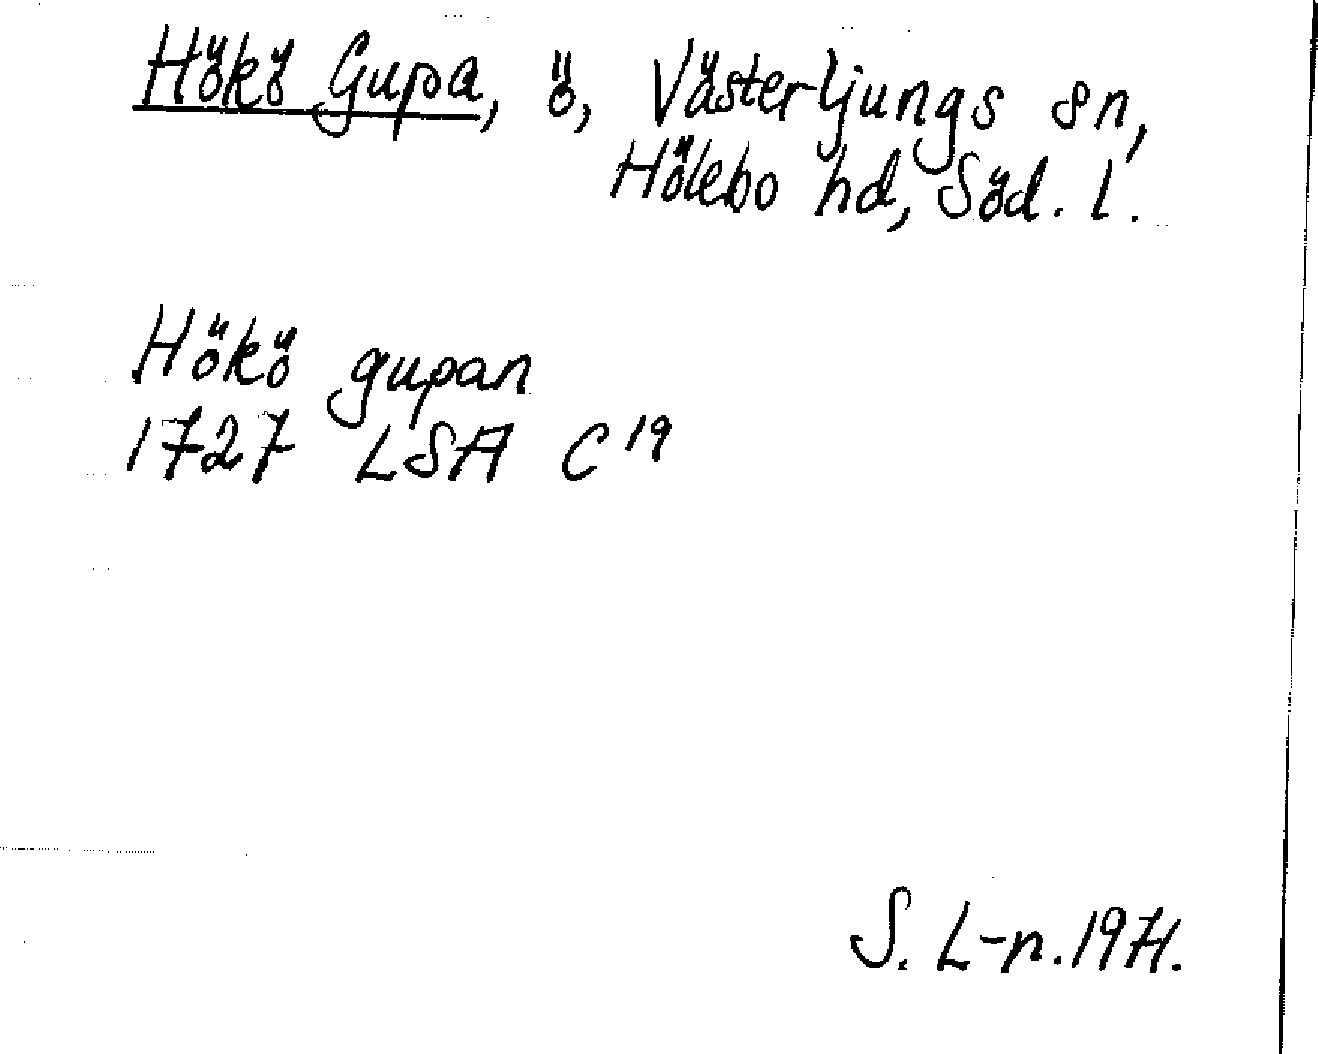 Hökö Gupa, ö, Västerljungs sn,
Hölebo hd, Söd. l.
Hökö gupan
1727 LSA C 19
S. L-n. 1971.